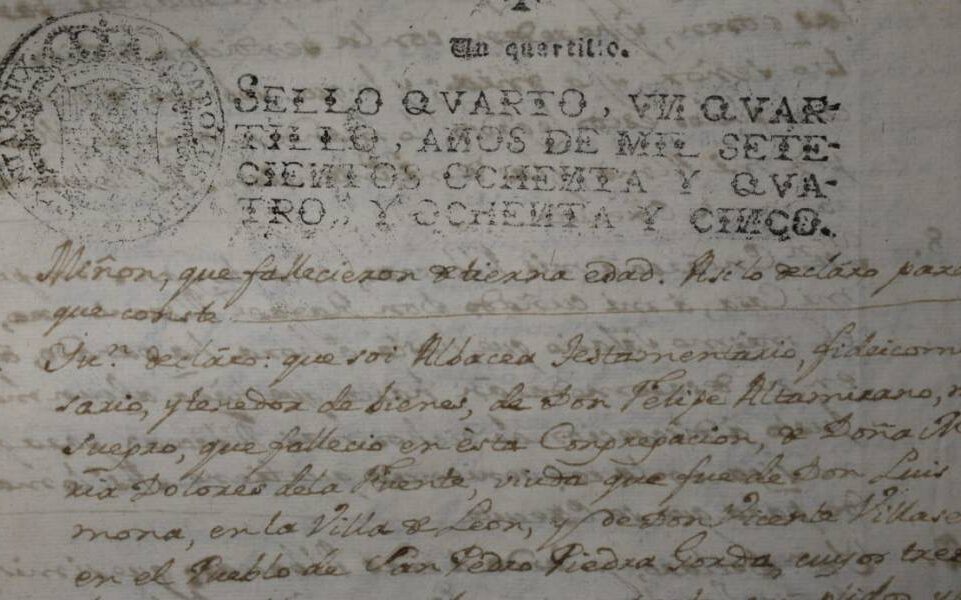 Un quartillo.
SELLO QVARTO, VN QVAR-
TILLO, AÑOS DE MIL SETE-
CIENTOS OCHENTA Y QVA-
TRO, Y OCHENTA Y CINCO.
Miñon, que fallecieron de tierna edad. Asi lo declaro para
que conste
Yt.n declaro: que soi Albacea Testamentario, fideicom
sario, y tenedor de bienes, de Don Felipe Altamirano, m
suegro, que fallecio en esta Congregacion, de Doña M
ria Dolores dela Fuente, viuda que fue de Don Luis
mona, en la Villa de Leon, y de Don Vicente Villase
en el Pueblo de San Pedro Piedra Gorda, cuyos tres